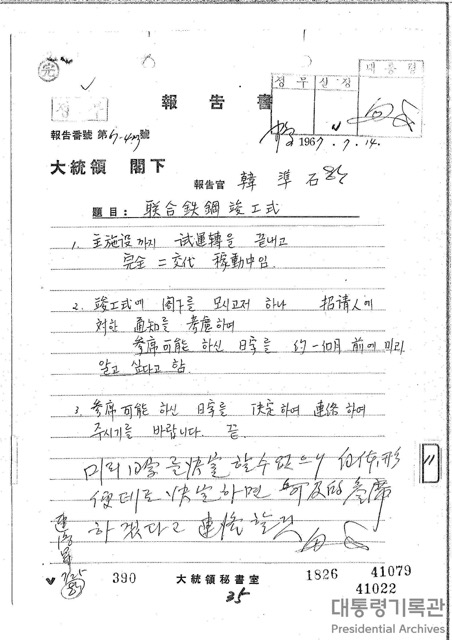 完
정무
報告書
정무실장
대통령
報告番號 第67-447號
1967. 7. 14.
大統領 閣下
報告官 韓準石
題目: 联合鉄鋼 竣工式
1. 主施設까지 試運轉을 끝내고
完全 二交代 稼動中임.
2. 竣工式에 閣下를 모시고저 하나 招請人에
対한 通知를 考慮하여
参席可能 하신 日字를 約 一個月 前에 미리
알고 싶다고 함.
3. 参席可能 하신 日字를 決定하여 連絡하여
주시기를 바랍니다. 끝.
미리 日字를 決定할 수 없으니 会社 形
便대로 決定하면 可及的 参席
하겠다고 連絡할 것
390
大統領秘書室
1826
41079
41022
35
11
대통령기록관
Presidential Archives